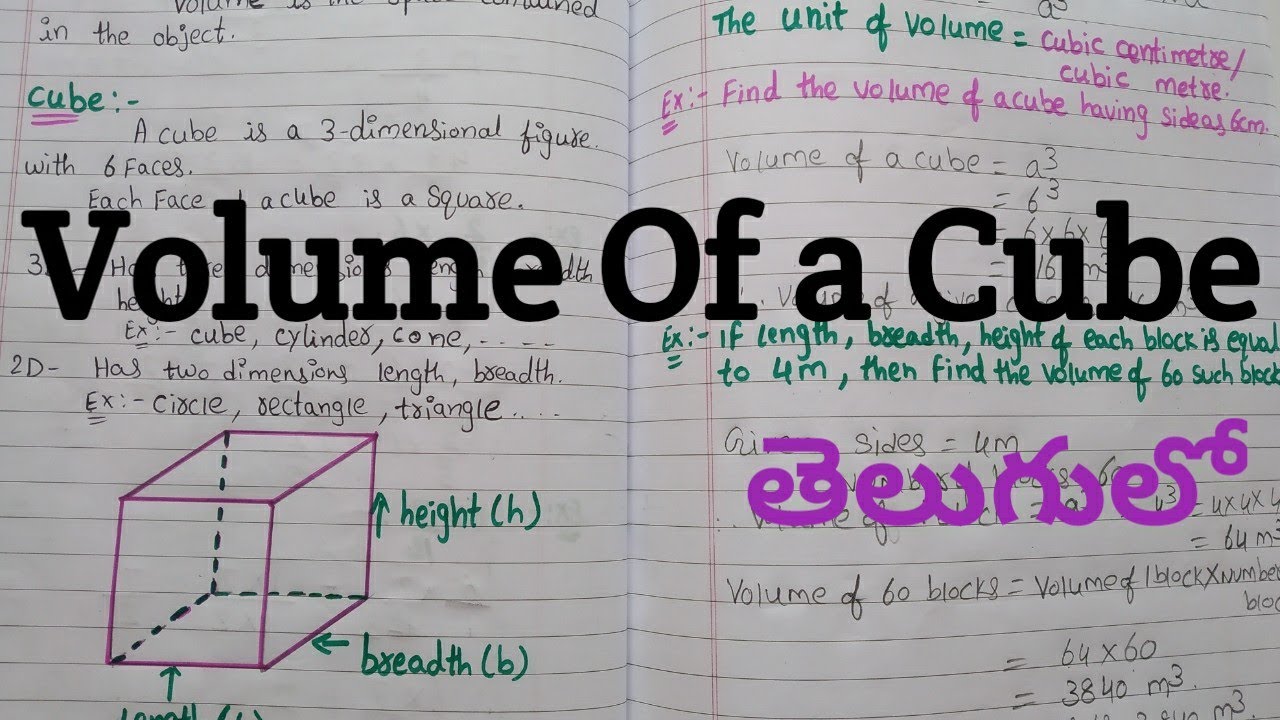 Volume is the space contained
in the object.
Cube:-
A cube is a 3-dimensional figure.
with 6 Faces.
Each Face a cube is a Square.
3
Ex:- cube, cylinder, cone, - - - -
2D- Has two dimensions length, breadth.
Ex:- Circle, rectangle, triangle....
height (h)
breadth (b)
a³
The unit of volume = cubic centimetre/
cubic metre.
Ex:- Find the volume of a cube having side as 6cm.
Volume of a cube = a³
= 6³
= 6x6x
=
Volume Of a Cube
Ex:- If length, breadth, height of each block is equal
to 4m, then find the volume of 60 such block
sides = 4m
తెలుగులో
4³ = 4x4x4
= 64 m³
Volume of 60 blocks = Volume of 1block x Number
bloc
= 64 x 60
= 3840 m³.
m³.